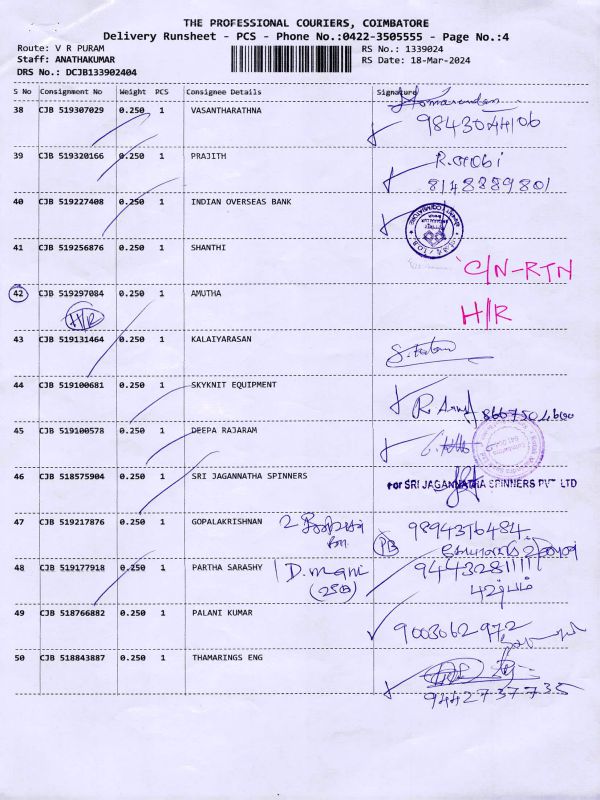 THE PROFESSIONAL COURIERS, COIMBATORE
Delivery Runsheet - PCS - Phone No.:0422-3505555 - Page No.:4
Route: V R PURAM
RS No.: 1339024
Staff: ANATHAKUMAR
RS Date: 18-Mar-2024
DRS No.: DCJB133902404
S No Consignment No Weight PCS Consignee Details Signature
38 CJB 519307029 0.250 1 VASANTHARATHNA
9843044106
39 CJB 519320166 0.250 1 PRAJITH R.Gobi
8148889801
40 CJB 519227408 0.250 1 INDIAN OVERSEAS BANK
41 CJB 519256876 0.250 1 SHANTHI
C/N-RTN
42 CJB 519297084 0.250 1 AMUTHA
H/R H/R
43 CJB 519131464 0.250 1 KALAIYARASAN
44 CJB 519100681 0.250 1 SKYKNIT EQUIPMENT
45 CJB 519100578 0.250 1 DEEPA RAJARAM
46 CJB 518575904 0.250 1 SRI JAGANNATHA SPINNERS
For SRI JAGANNATHA SPINNERS PVT LTD
47 CJB 519217876 0.250 1 GOPALAKRISHNAN 2
PB 9894376484
48 CJB 519177918 0.250 1 PARTHA SARASHY D.mani
94432811111
49 CJB 518766882 0.250 1 PALANI KUMAR
9003062972
50 CJB 518843887 0.250 1 THAMARINGS ENG
9442737735